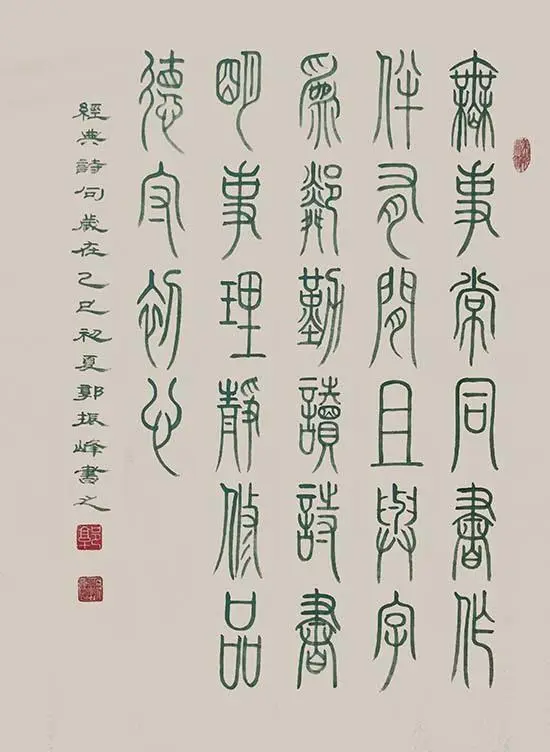 無事常同書作
伴有閒且與字
為鄰勤讀詩書
明事理靜修品
德守初心
經典詩句歲在乙巳初夏郭振峰書之